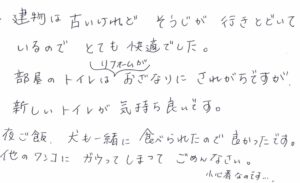 ・建物は古いけれど そうじが 行きとどいて
いるので とても 快適でした。
リフォームが
部屋のトイレは おざなりに されがちですが、
新しいトイレが 気持ち良いです。
夜ご飯、犬も一緒に 食べられたので 良かったです。
他のワンコに ガウッてしまって ごめんなさい。
小心者なのです…